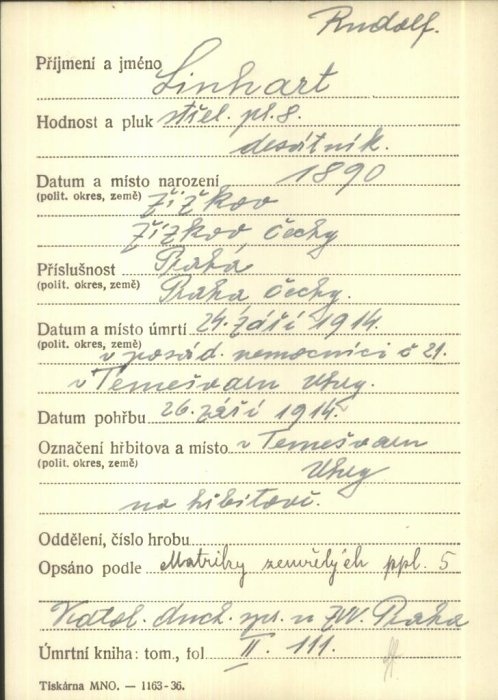 Rudolf.
Příjmení a jméno Linhart
Hodnost a pluk střel. pl. 8.
desátník.
Datum a místo narození 1890
(polit. okres, země) Žižkov
Žižkov Čechy
Příslušnost Praha
(polit. okres, země) Praha, Čechy.
Datum a místo úmrtí 24. září 1914.
(polit. okres, země) v posád. nemocnici č 21.
v Temešvaru Uhry.
Datum pohřbu 26. září 1914.
Označení hřbitova a místo v Temešvaru
(polit. okres, země) Uhry
na hřbitově.
Oddělení, číslo hrobu
Opsáno podle Matriky zemřelých ppl. 5
Katol. duch. spr. u ZVV. Praha
Úmrtní kniha: tom., fol. II. 111.
Tiskárna MNO. — 1163-36.